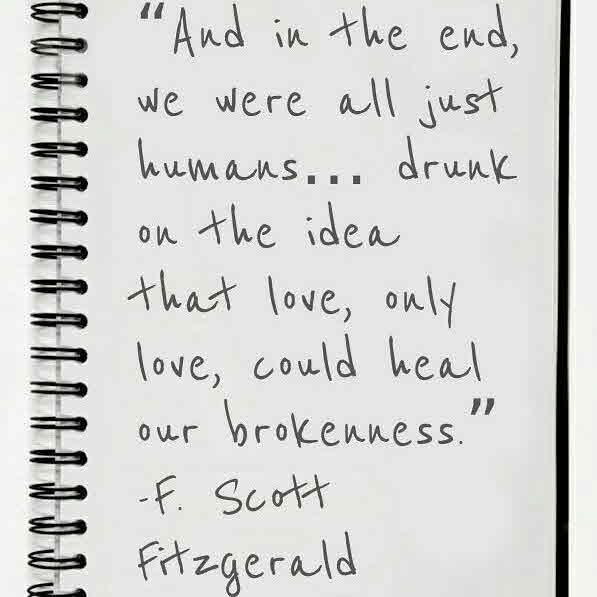 “And in the end,
we were all just
humans... drunk
on the idea
that love, only
love, could heal
our brokenness.”
-F. Scott
Fitzgerald